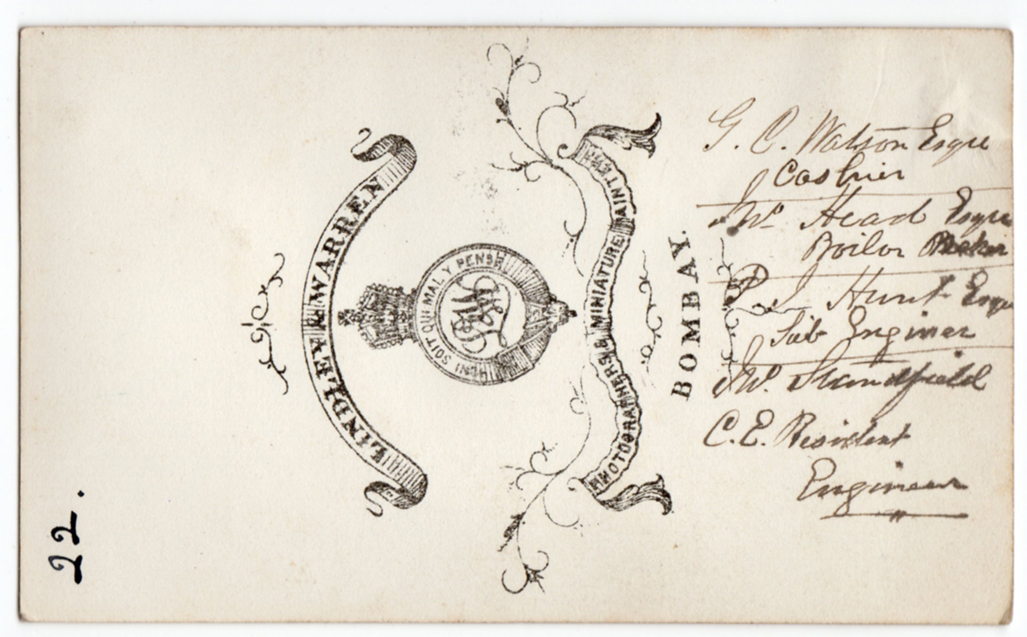 LINDLEY & WARREN
HONI SOIT QUI MAL Y PENSE
PHOTOGRAPHERS & MINIATURE PAINTERS
BOMBAY.
G. C. Watson Esqre
Cashier
Wm Head Esqre
Boiler Maker
P. J. Hunt Esqre
Sub Engineer
Wm. Standfield
C. E. Resident
Engineer
22.